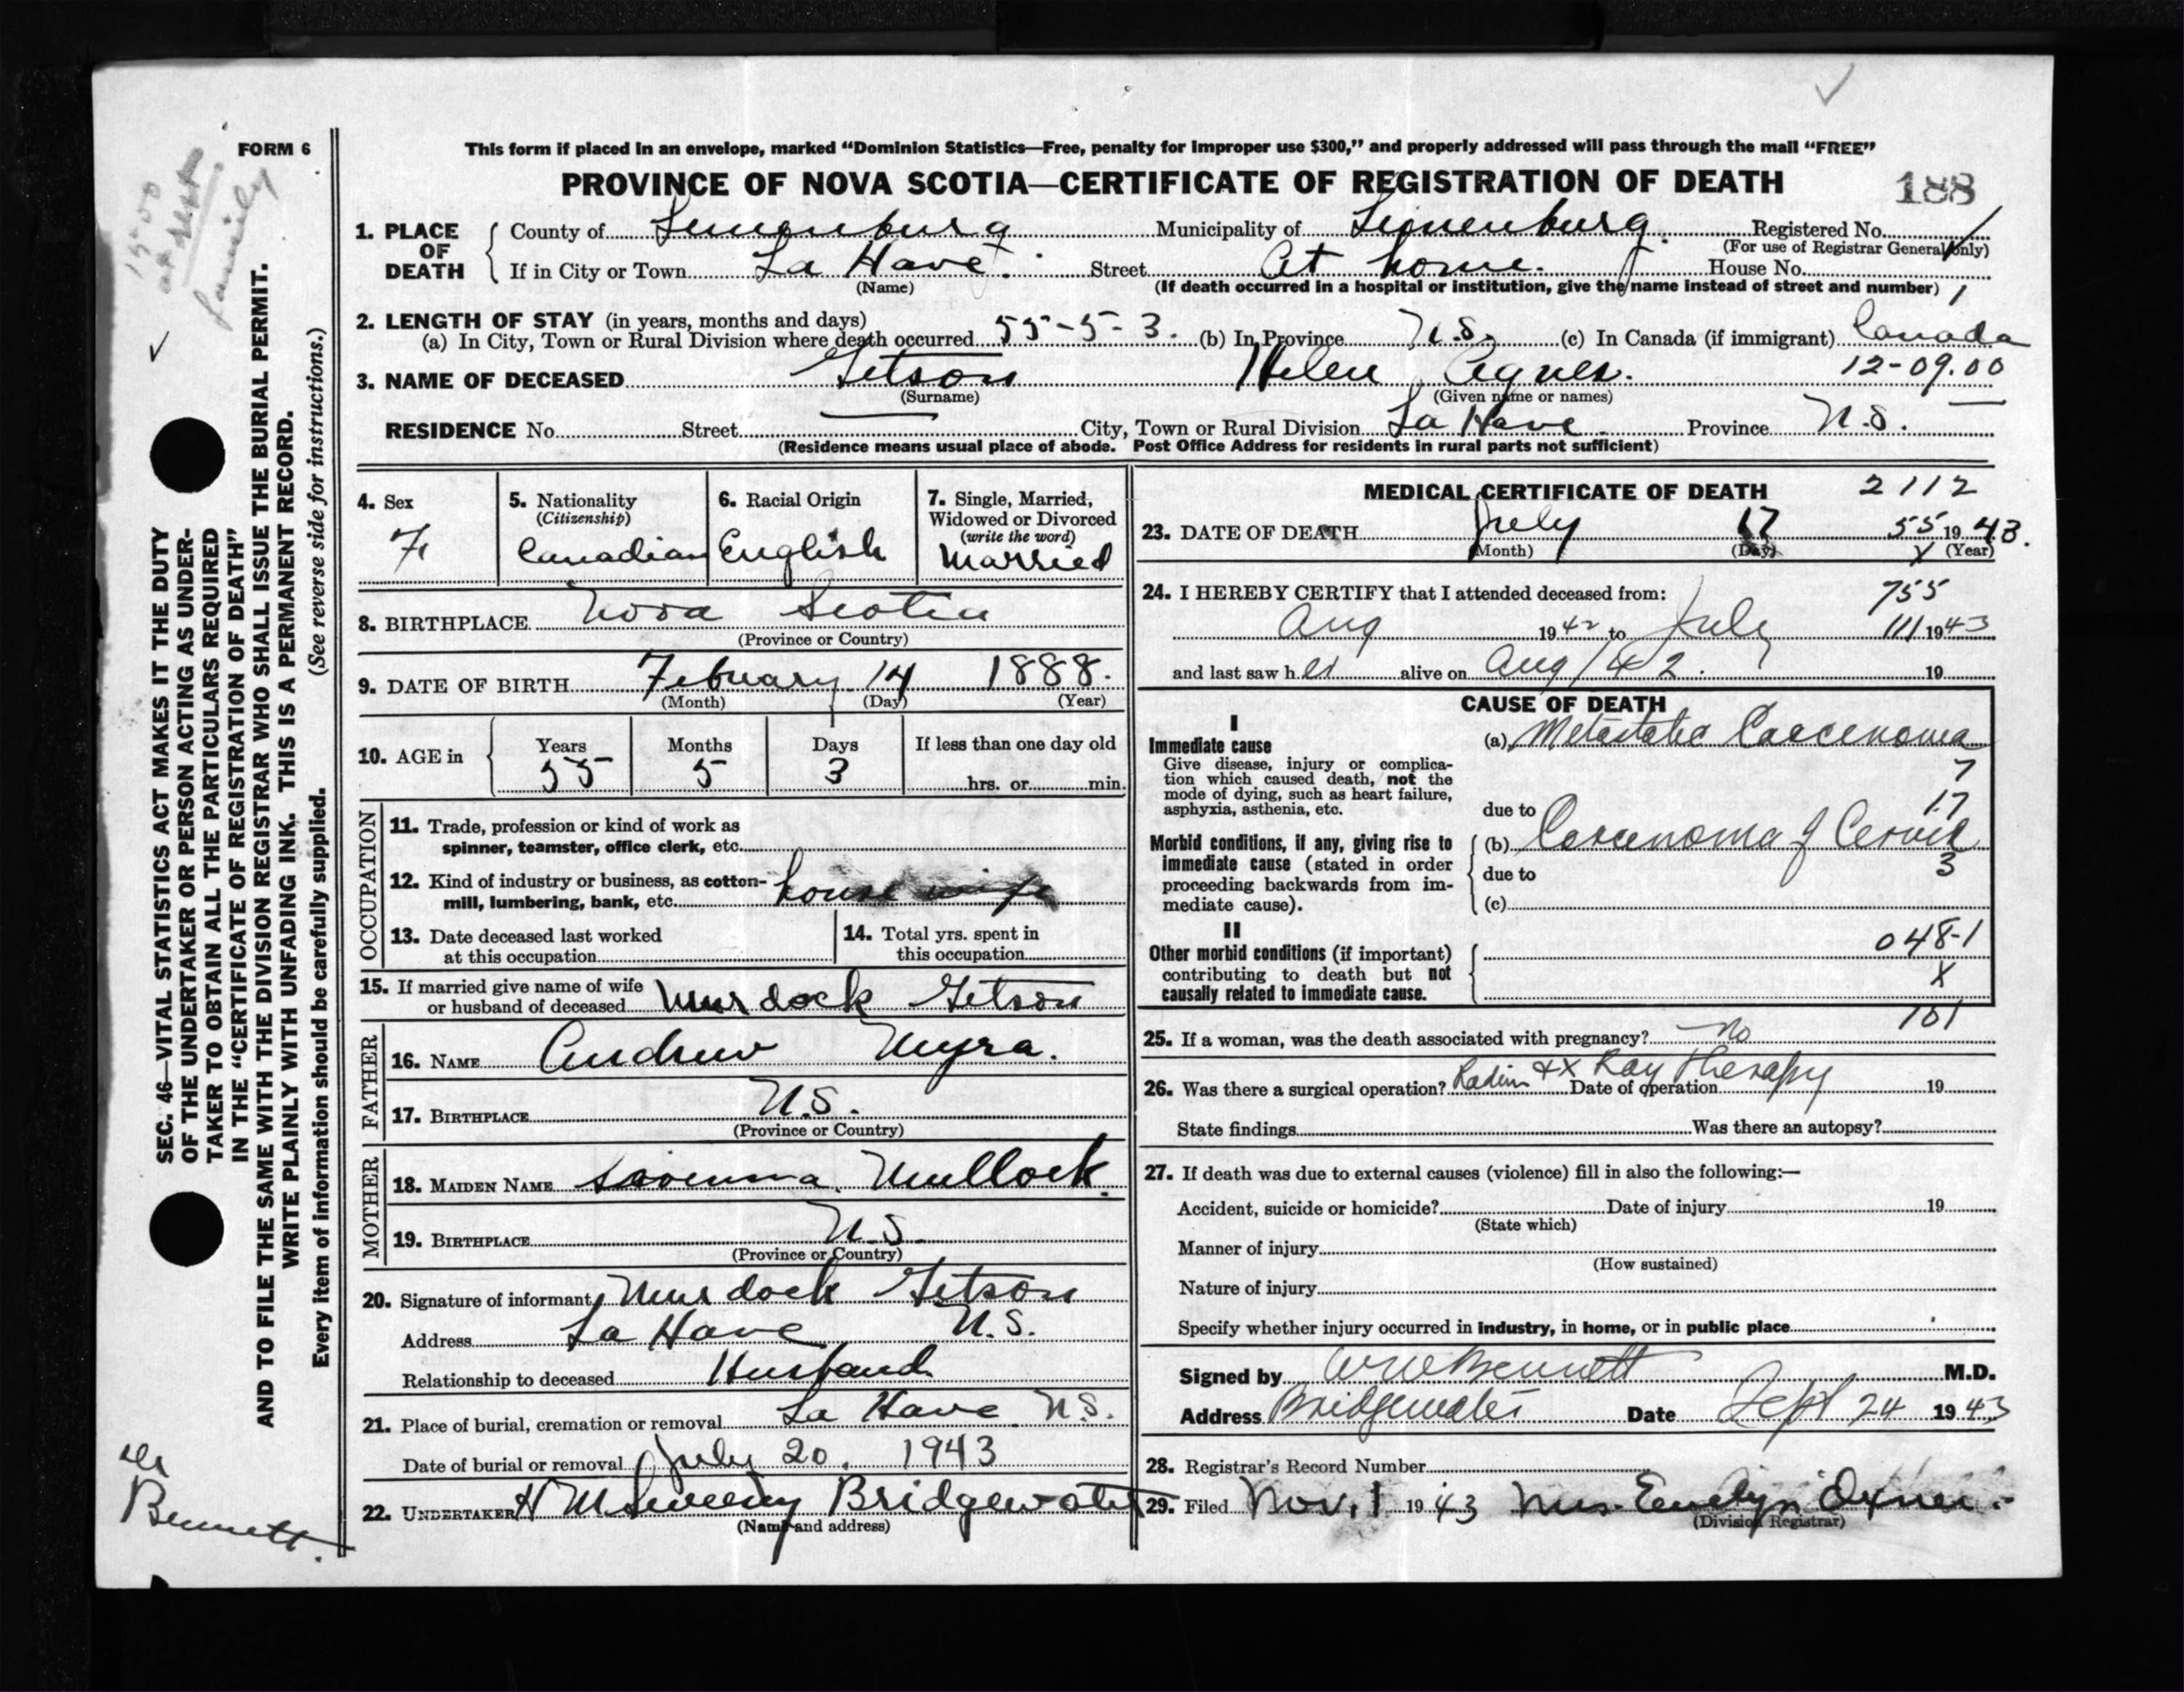 FORM 6
This form if placed in an envelope, marked “Dominion Statistics—Free, penalty for improper use $300,” and properly addressed will pass through the mail “FREE”
PROVINCE OF NOVA SCOTIA—CERTIFICATE OF REGISTRATION OF DEATH 188
1. PLACE OF DEATH County of Lunenburg Municipality of Lunenburg. Registered No.
(For use of Registrar General only)
If in City or Town La Have. Street At home. House No.
(Name) (If death occurred in a hospital or institution, give the name instead of street and number)
2. LENGTH OF STAY (in years, months and days)
(a) In City, Town or Rural Division where death occurred 55-5-3. (b) In Province N.S. (c) In Canada (if immigrant) Canada
12-09.00
3. NAME OF DECEASED Getson Helen Agnes.
(Surname) (Given name or names)
RESIDENCE No. Street City, Town or Rural Division La Have. Province N.S.
(Residence means usual place of abode. Post Office Address for residents in rural parts not sufficient)
4. Sex F
5. Nationality (Citizenship) Canadian
6. Racial Origin English
7. Single, Married, Widowed or Divorced (write the word) Married
8. BIRTHPLACE Nova Scotia
(Province or Country)
9. DATE OF BIRTH February 14 1888.
(Month) (Day) (Year)
10. AGE in Years 55 Months 5 Days 3 If less than one day old
hrs. or min.
OCCUPATION
11. Trade, profession or kind of work as
spinner, teamster, office clerk, etc.
12. Kind of industry or business, as cotton-
mill, lumbering, bank, etc. house wife
13. Date deceased last worked
at this occupation
14. Total yrs. spent in
this occupation
15. If married give name of wife
or husband of deceased Murdock Getson
FATHER
16. NAME Andrew Myra.
17. BIRTHPLACE N.S.
(Province or Country)
MOTHER
18. MAIDEN NAME Mullock.
19. BIRTHPLACE N.S.
(Province or Country)
20. Signature of informant Murdock Getson
Address La Have N.S.
Relationship to deceased Husband
21. Place of burial, cremation or removal La Have N.S.
Date of burial or removal July 20, 1943
22. UNDERTAKER Sweeny Bridgewater
(Name and address)
MEDICAL CERTIFICATE OF DEATH 2112
23. DATE OF DEATH July 17 55 1943.
(Month) (Day) X (Year)
24. I HEREBY CERTIFY that I attended deceased from: 755
Aug 1942 to July 111 1943
and last saw her alive on Aug/42. 19
CAUSE OF DEATH
I
Immediate cause
Give disease, injury or complica-
tion which caused death, not the
mode of dying, such as heart failure,
asphyxia, asthenia, etc.
(a) Metastatic Carcenoma
7
17
due to
Morbid conditions, if any, giving rise to
immediate cause (stated in order
proceeding backwards from im-
mediate cause).
(b) Carcenoma of Cervix
due to 3
(c)
II
Other morbid conditions (if important)
contributing to death but not
causally related to immediate cause.
048-1
X
101
25. If a woman, was the death associated with pregnancy? No
26. Was there a surgical operation? Radium + X Ray Therapy Date of operation 19
State findings Was there an autopsy?
27. If death was due to external causes (violence) fill in also the following:—
Accident, suicide or homicide? Date of injury 19
(State which)
Manner of injury
(How sustained)
Nature of injury
Specify whether injury occurred in industry, in home, or in public place
Signed by Bennett M.D.
Address Bridgewater Date Sept 24 1943
28. Registrar's Record Number
29. Filed Nov. 1 1943 Mrs. Evelyn Oxner.
(Division Registrar)
SEC. 46—VITAL STATISTICS ACT MAKES IT THE DUTY
OF THE UNDERTAKER OR PERSON ACTING AS UNDER-
TAKER TO OBTAIN ALL THE PARTICULARS REQUIRED
IN THE “CERTIFICATE OF REGISTRATION OF DEATH”
AND TO FILE THE SAME WITH THE DIVISION REGISTRAR WHO SHALL ISSUE THE BURIAL PERMIT.
WRITE PLAINLY WITH UNFADING INK. THIS IS A PERMANENT RECORD.
Every item of information should be carefully supplied. (See reverse side for instructions.)
15-00
family
Dr
Bennett.